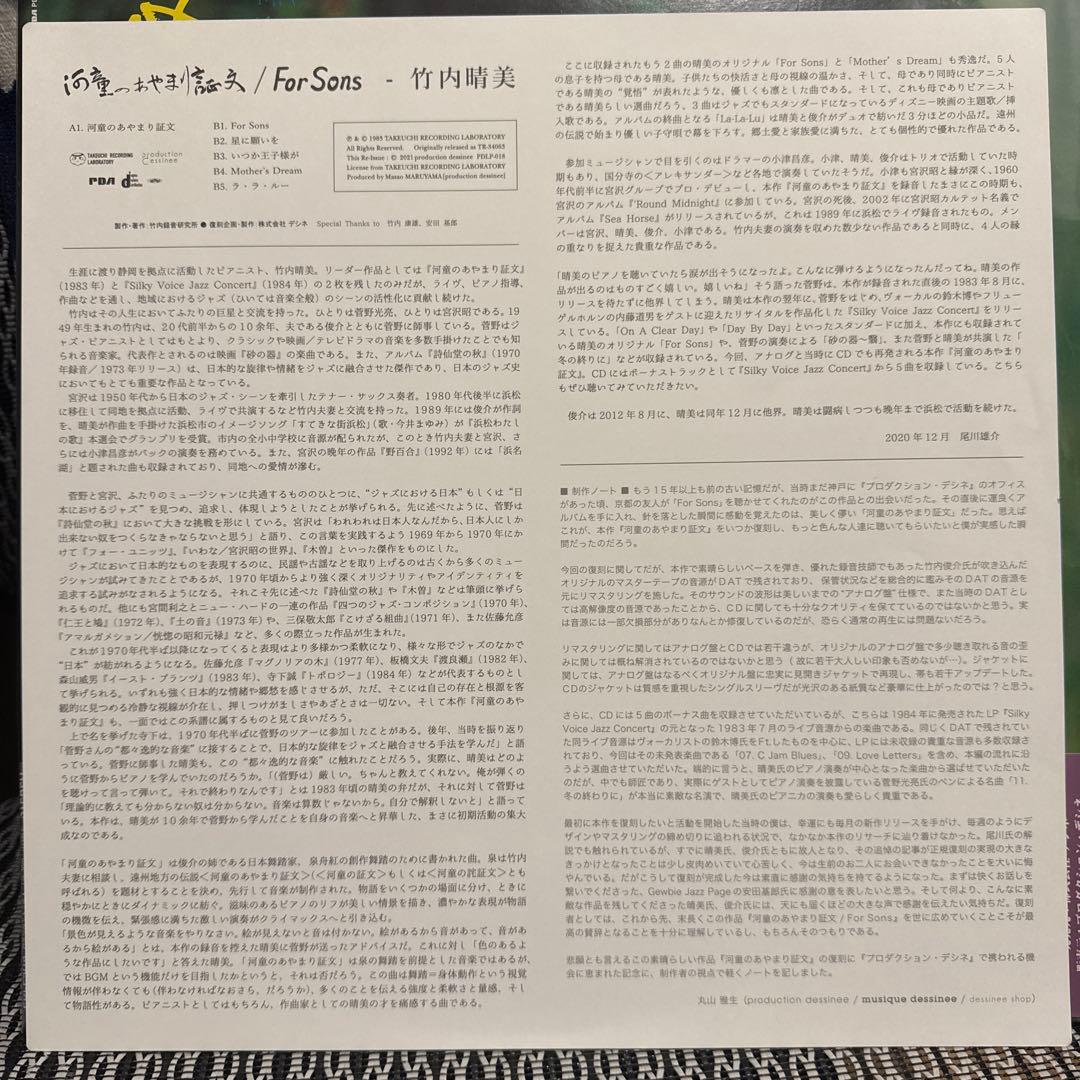 河童のあやまり証文 / For Sons - 竹内晴美
A1. 河童のあやまり証文
B1. For Sons
B2. 星に願いを
B3. いつか王子様が
B4. Mother's Dream
B5. ラ・ラ・ルー
TAKEUCHI RECORDING LABORATORY
production dessinee
PDA
℗ & © 1983 TAKEUCHI RECORDING LABORATORY
All Rights Reserved. Originally released as TR-34063
This Re-Issue : © 2021 production dessinee PDLP-018
License from TAKEUCHI RECORDING LABORATORY
Produced by Masao MARUYAMA[production dessinee]
製作・著作：竹内録音研究所 ● 復刻企画・製作：株式会社 デシネ Special Thanks to 竹内 康雄、安田 基郎
生涯に渡り静岡を拠点に活動したピアニスト、竹内晴美。リーダー作品としては『河童のあやまり証文』
（1983年）と『Silky Voice Jazz Concert』（1984年）の2枚を残したのみだが、ライヴ、ピアノ指導、
作曲などを通し、地域におけるジャズ（ひいては音楽全般）のシーンの活性化に貢献し続けた。
竹内はその人生においてふたりの巨星と交流を持った。ひとりは菅野光亮、ひとりは宮沢昭である。19
49年生まれの竹内は、20代前半からの10余年、夫である俊介とともに菅野に師事している。菅野はジャ
ズ・ピアニストとしてはもとより、クラシックや映画／テレビドラマの音楽を多数手掛けたことでも知
られる音楽家。代表作とされるのは映画『砂の器』の楽曲である。また、アルバム『詩仙堂の秋』（1970
年録音／1973年リリース）は、日本的な旋律や情緒をジャズに融合させた傑作であり、日本のジャズ史
においてもとても重要な作品となっている。
宮沢は1950年代から日本のジャズ・シーンを牽引したテナー・サックス奏者。1980年代後半に浜松
に移住して同地を拠点に活動、ライヴで共演するなど竹内夫妻と交流を持った。1989年には俊介が作詞
を、晴美が作曲を手掛けた浜松市のイメージソング「すてきな街浜松」（歌・今井まゆみ）が『浜松わたし
の歌』本選会でグランプリを受賞。市内の全小中学校に音源が配られたが、このとき竹内夫妻と宮沢、さ
らには小津昌彦がバックの演奏を務めている。また、宮沢の晩年の作品『野百合』（1992年）には「浜名
湖」と題された曲も収録されており、同地への愛情が滲む。
菅野と宮沢、ふたりのミュージシャンに共通するもののひとつに、“ジャズにおける日本”もしくは“日
本におけるジャズ”を見つめ、追求し、体現しようとしたことが挙げられる。先に述べたように、菅野は
『詩仙堂の秋』において大きな挑戦を形にしている。宮沢は「われわれは日本人なんだから、日本人にしか
出来ない奴をつくらなきゃならないと思う」と語り、この言葉を実践するよう1969年から1970年にか
けて『フォー・ユニッツ』、『いわな／宮沢昭の世界』、『木曽』といった傑作をものにした。
ジャズにおいて日本的なものを表現するのに、民謡や古謡などを取り上げるのは古くから多くのミュー
ジシャンが試みてきたことであるが、1970年頃からより強く深くオリジナリティやアイデンティティを
追求する試みがなされるようになる。それこそ先に述べた『詩仙堂の秋』や『木曽』などは筆頭に挙げら
れるものだ。他にも宮間利之とニュー・ハードの一連の作品『四つのジャズ・コンポジション』（1970年）、
『仁王と鳩』（1972年）、『土の音』（1973年）や、三保敬太郎『こけざる組曲』（1971年）、また佐藤允彦
『アマルガメション／恍惚の昭和元禄』など、多くの際立った作品が生まれた。
これが1970年代半ば以降になってくると表現はより多様かつ柔軟になり、様々な形でジャズのなかで
“日本”が紡がれるようになる。佐藤允彦『マグノリアの木』（1977年）、板橋文夫『渡良瀬』（1982年）、
森山威男『イースト・プランツ』（1983年）、寺下誠『トポロジー』（1984年）などが代表するものとし
て挙げられる。いずれも強く日本的な情緒や郷愁を感じさせるが、ただ、そこには自己の存在と根源を客
観的に見つめる冷静な視線が介在し、押しつけがましさやあざとさは一切ない。そして本作『河童のあや
まり証文』も、一面ではこの系譜に属するものと見て良いだろう。
上で名を挙げた寺下は、1970年代半ばに菅野のツアーに参加したことがある。後年、当時を振り返り
「菅野さんの“都々逸的な音楽”に接することで、日本的な旋律をジャズと融合させる手法を学んだ」と語
っている。菅野に師事した晴美も、この“都々逸的な音楽”に触れたことだろう。実際に、晴美はどのよ
うに菅野からピアノを学んでいたのだろうか。「（菅野は）厳しい。ちゃんと教えてくれない。俺が弾くの
を聴けって言って弾いて。それで終わりなんです」とは1983年頃の晴美の弁だが、それに対して菅野は
「理論的に教えても分からない奴は分からない。音楽は算数じゃないから。自分で解釈しないと」と語って
いる。本作は、晴美が10余年で菅野から学んだことを自身の音楽へと昇華した、まさに初期活動の集大
成なのである。
「河童のあやまり証文」は俊介の姉である日本舞踊家、泉舟紅の創作舞踊のために書かれた曲。泉は竹内
夫妻に相談し、遠州地方の伝説＜河童のあやまり証文＞（＜河童の証文＞もしくは＜河童の詫証文＞とも
呼ばれる）を題材とすることを決め、先行して音楽が制作された。物語をいくつかの場面に分け、ときに
穏やかにときにダイナミックに紡ぐ。滋味のあるピアノのリフが美しい情景を描き、濃やかな表現が物語
の機微を伝え、緊張感に満ちた激しい演奏がクライマックスへと引き込む。
「景色が見えるような音楽をやりなさい。絵が見えないと音は付かない。絵があるから音があって、音があ
るから絵がある」とは、本作の録音を控えた晴美に菅野が送ったアドバイスだ。これに対し「色のあるよ
うな作品にしたいです」と答えた晴美。「河童のあやまり証文」は泉の舞踊を前提とした音楽ではあるが、
ではBGMという機能だけを目指したかというと、それは否だろう。この曲は舞踊＝身体動作という視覚
情報が伴わなくても（伴わなければなおさら、だろうか）、多くのことを伝える強度と柔軟さと量感、そし
て物語性がある。ピアニストとしてはもちろん、作曲家としての晴美の才を痛感する曲である。
ここに収録されたもう2曲の晴美のオリジナル「For Sons」と「Mother's Dream」も秀逸だ。5人
の息子を持つ母である晴美。子供たちの快活さと母の視線の温かさ、そして、母であり同時にピアニスト
である晴美の“覚悟”が表れたような、優しくも凛とした曲である。そして、これも母でありピアニスト
である晴美らしい選曲だろう、3曲はジャズでもスタンダードになっているディズニー映画の主題歌／挿
入歌である。アルバムの終曲となる「La-La-Lu」は晴美と俊介がデュオで紡いだ3分ほどの小品だ。遠州
の伝説で始まり優しい子守唄で幕を下ろす。郷土愛と家族愛に満ちた、とても個性的で優れた作品である。
参加ミュージシャンで目を引くのはドラマーの小津昌彦。小津、晴美、俊介はトリオで活動していた時
期もあり、国分寺の＜アレキサンダー＞など各地で演奏していたそうだ。小津も宮沢昭と縁が深く、1960
年代前半に宮沢グループでプロ・デビューし、本作『河童のあやまり証文』を録音したまさにこの時期も、
宮沢のアルバム『'Round Midnight』に参加している。宮沢の死後、2002年に宮沢昭カルテット名義で
アルバム『Sea Horse』がリリースされているが、これは1989年に浜松でライヴ録音されたもの。メン
バーは宮沢、晴美、俊介、小津である。竹内夫妻の演奏を収めた数少ない作品であると同時に、4人の縁
の重なりを捉えた貴重な作品である。
「晴美のピアノを聴いていたら涙が出そうになったよ。こんなに弾けるようになったんだってね。晴美の作
品が出るのはものすごく嬉しい。嬉しいね」そう語った菅野は、本作が録音された直後の1983年8月に、
リリースを待たずに他界してしまう。晴美は本作の翌年に、菅野をはじめ、ヴォーカルの鈴木博やフリュー
ゲルホルンの内藤道男をゲストに迎えたリサイタルを作品化した『Silky Voice Jazz Concert』をリリー
スしている。「On A Clear Day」や「Day By Day」といったスタンダードに加え、本作にも収録されて
いる晴美のオリジナル「For Sons」や、菅野の演奏による「砂の器〜翳」、また菅野と晴美が共演した「
冬の終りに」などが収録されている。今回、アナログと当時にCDでも再発される本作『河童のあやまり
証文』。CDにはボーナストラックとして『Silky Voice Jazz Concert』から5曲を収録している。こちら
もぜひ聴いてみていただきたい。
俊介は2012年8月に、晴美は同年12月に他界。晴美は闘病しつつも晩年まで浜松で活動を続けた。
2020年12月 尾川雄介
■ 制作ノート ■ もう15年以上も前の古い記憶だが、当時まだ神戸に『プロダクション・デシネ』のオフィス
があった頃、京都の友人が「For Sons」を聴かせてくれたのがこの作品との出会いだった。その直後に運良くア
ルバムを手に入れ、針を落とした瞬間に感動を覚えたのは、美しく儚い「河童のあやまり証文」だった。思えば
これが、本作『河童のあやまり証文』をいつか復刻し、もっと色んな人達に聴いてもらいたいと僕が実感した瞬
間だったのだろう。
今回の復刻に関してだが、本作で素晴らしいベースを弾き、優れた録音技師でもあった竹内俊介氏が吹き込んだ
オリジナルのマスターテープの音源がDATで残されており、保管状況などを総合的に鑑みそのDATの音源を
元にリマスタリングを施した。そのサウンドの波形は美しいまでの“アナログ盤”仕様で、また当時のDATとし
ては高解像度の音源であったことから、CDに関しても十分なクオリティを保てているのではないかと思う。実
は音源には一部欠損部分がありなんとか修復しているのだが、恐らく通常の再生には問題ないだろう。
リマスタリングに関してはアナログ盤とCDでは若干違うが、オリジナルのアナログ盤で多少聴き取れる音の歪
みに関しては概ね解消されているのではないかと思う（故に若干大人しい印象も否めないが…）。ジャケットに
関しては、アナログ盤はなるべくオリジナル盤に忠実に見開きジャケットで再現し、帯も若干アップデートした。
CDのジャケットは質感を重視したシングルスリーヴだが光沢のある紙質など豪華に仕上がったのでは？と思う。
さらに、CDには5曲のボーナス曲を収録させていただいているが、こちらは1984年に発売されたLP『Silky
Voice Jazz Concert』の元となった1983年7月のライヴ音源からの楽曲である。同じくDATで残されてい
た同ライヴ音源はヴォーカリストの鈴木博氏をFt.したものを中心に、LPには未収録の貴重な音源も多数収録さ
れており、今回はその未発表楽曲である「07. C Jam Blues」、「09. Love Letters」を含め、本編曲の流れに沿
うよう選曲させていただいた。端的に言うと、晴美氏のピアノ演奏が中心となった楽曲から選ばせていただいた
のだが、中でも師匠であり、実際にゲストとしてピアノ演奏を披露している菅野光亮氏のペンによる名曲「11.
冬の終わりに」が本当に素敵な名演で、晴美氏のピアニカの演奏も愛らしく貴重である。
最初に本作を復刻したいと活動を開始した当時の僕は、幸運にも毎月の新作リリースを手がけ、毎週のようにデ
ザインやマスタリングの締め切りに追われる状況で、なかなか本作のリサーチに辿り着けなかった。尾川氏の解
説でも触れられているが、すでに晴美氏、俊介氏ともに故人となり、その追悼の記事が正規復刻の実現の大きな
きっかけとなったことは少し皮肉めいていて心苦しく、今は生前のお二人にお会いできなかったことを大いに悔
やんでいる。だがこうして復刻が完成した今は素直に感謝の気持ちを持てるようになった。まずは快くお話しを
繋いでくださった、Gewbie Jazz Pageの安田基郎氏に感謝の意を表したいと思う。そして何より、こんなに素
敵な作品を残してくださった晴美氏、俊介氏には、天にも届くほどの大きな声で感謝を伝えたい気持ちだ。復刻
者としては、これから先、末長くこの作品『河童のあやまり証文 / For Sons』を世に広めていくことこそが最
高の賛辞となることを十分に理解しているし、もちろんそのつもりである。
悲願とも言えるこの素晴らしい作品『河童のあやまり証文』の復刻に『プロダクション・デシネ』で携われる機
会に恵まれた記念に、制作者の視点で軽くノートを記しました。
丸山 雅生 (production dessinee / musique dessinee / dessinee shop)